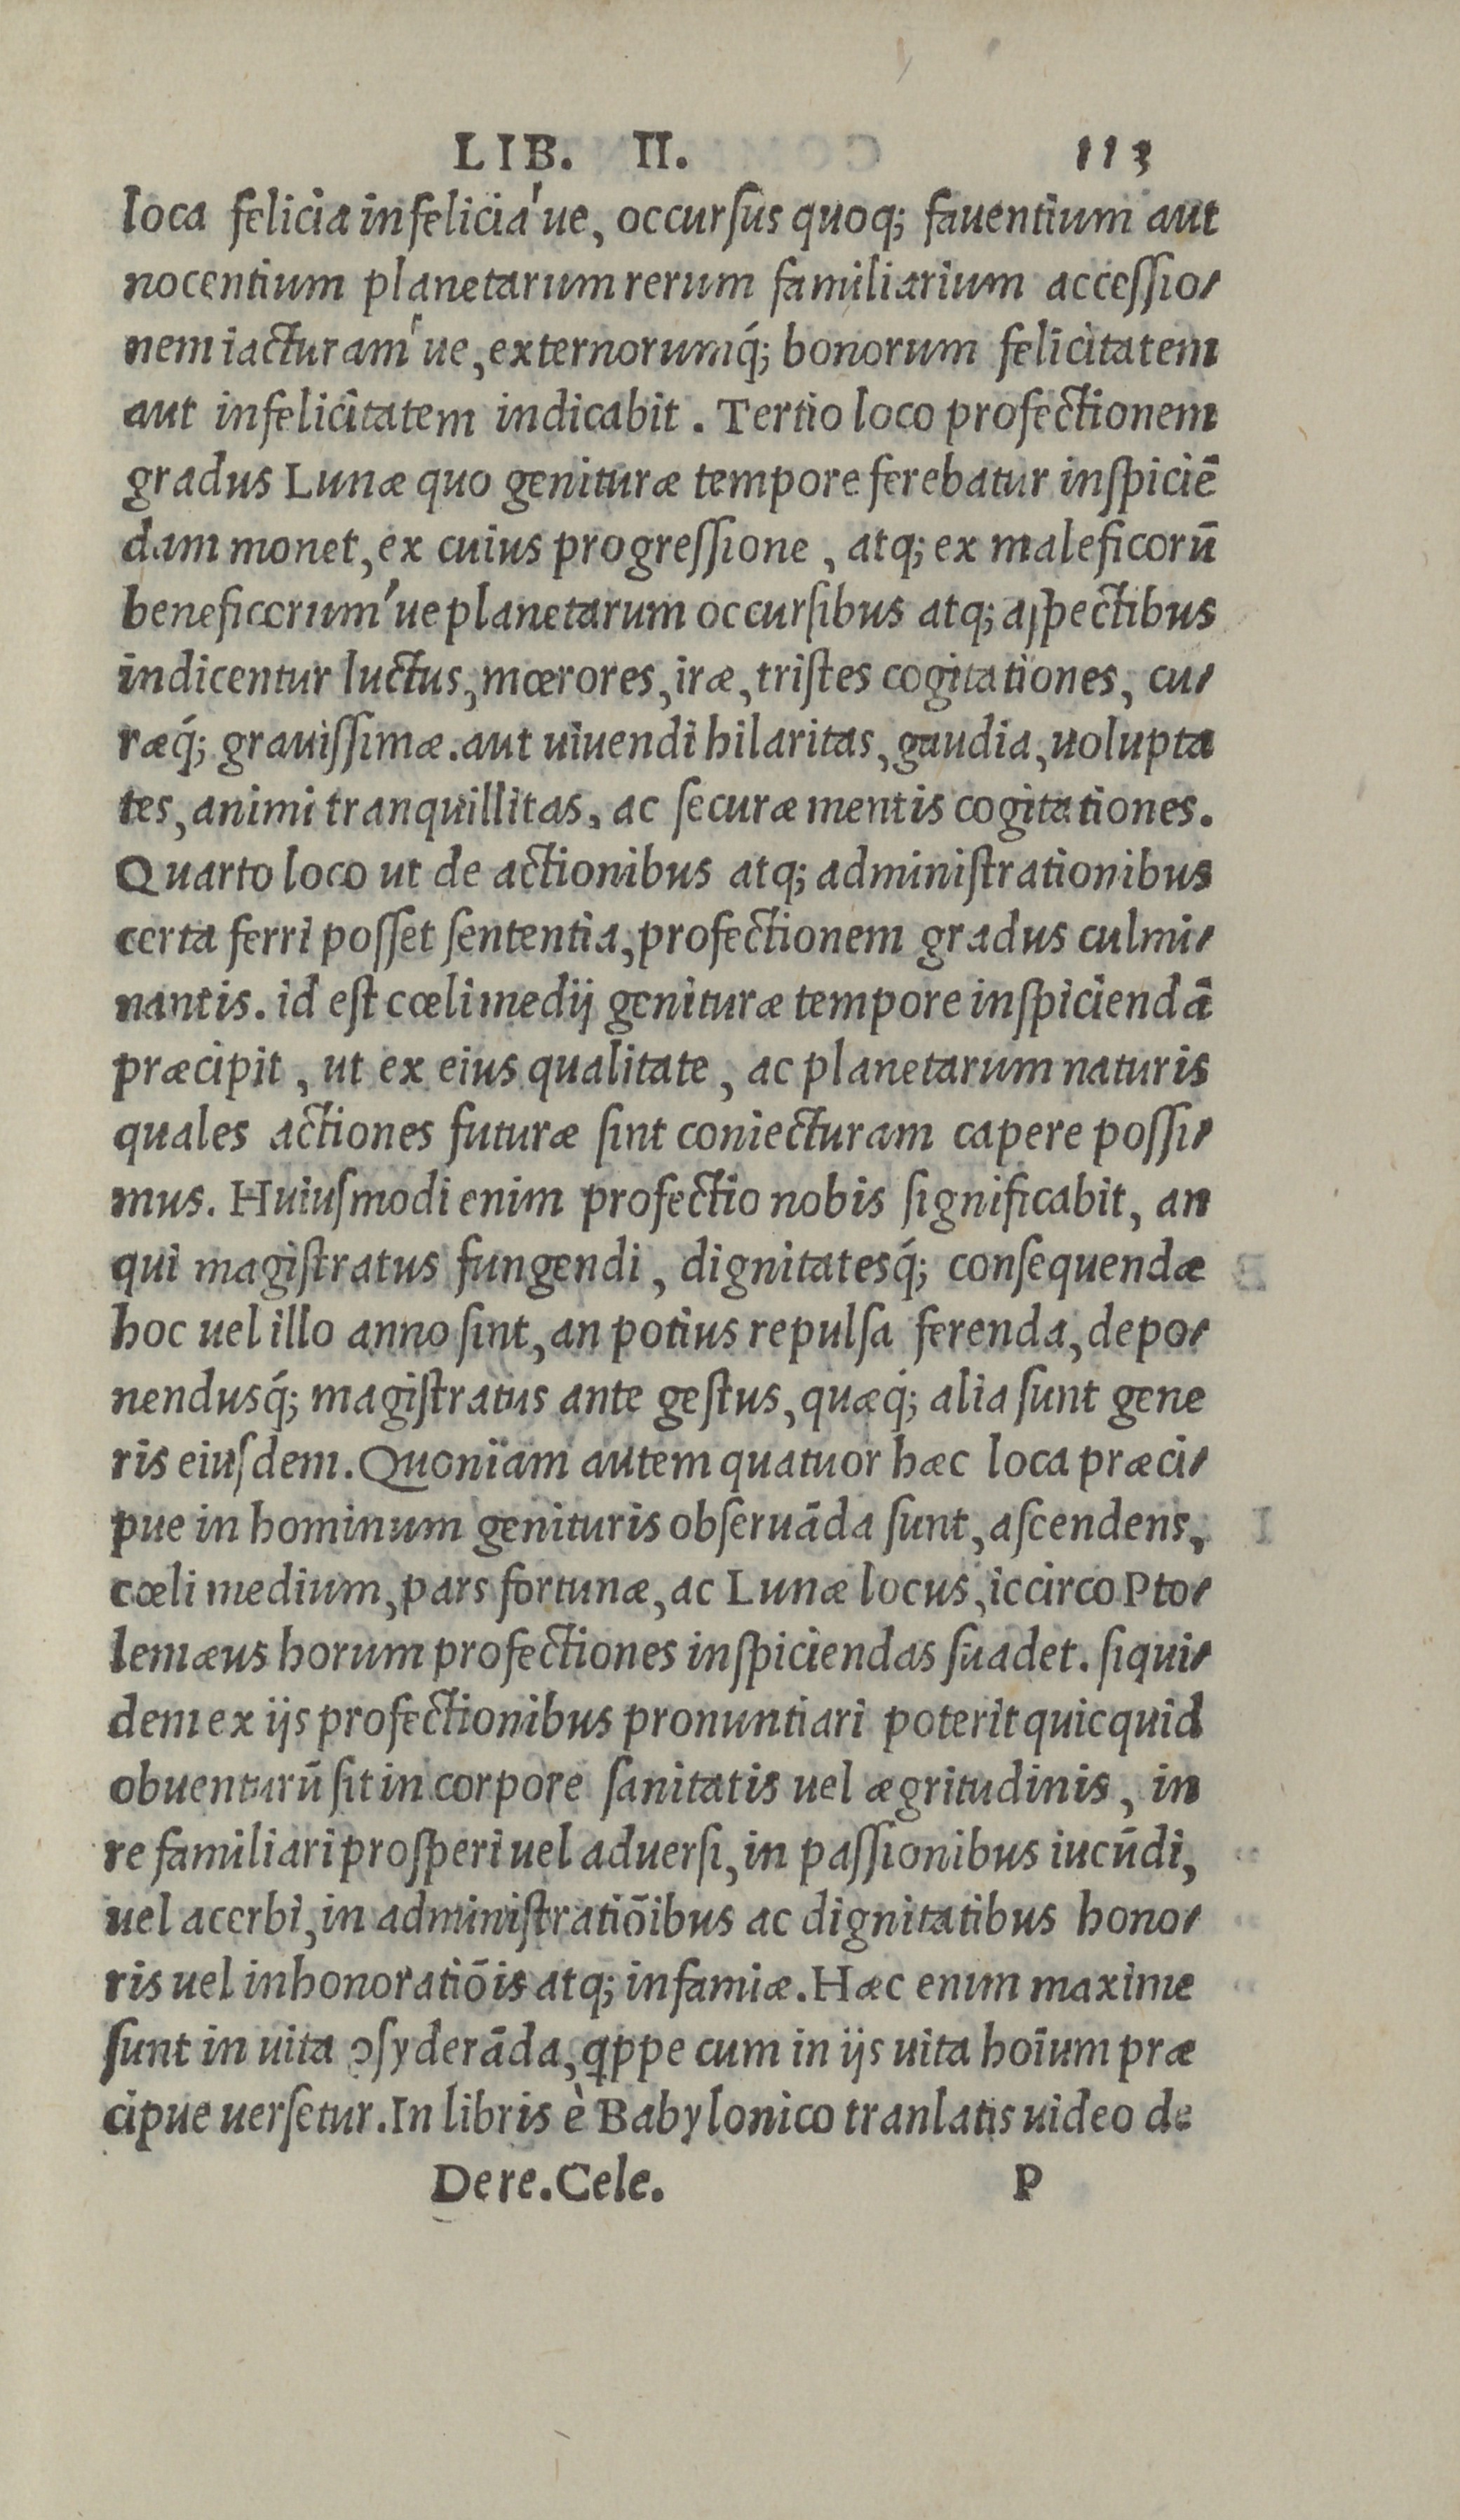 LIB. II. 113
loca felicia infelicia'ue, occurſus quoq; fauentium aut
nocentium planetarum rerum familiarium acceſſio-
nem iacturam'ue, externorumq́; bonorum felicitatem
aut infelicitatem indicabit. Tertio loco profectionem
gradus Lunæ quo genituræ tempore ferebatur inſpiciē
dam monet, ex cuius progreſſione, atq; ex maleficorū
beneficorum'ue planetarum occurſibus atq; aſpectibus
indicentur luctus, mœrores, iræ, triſtes cogitationes, cu-
ræq́; grauiſſimæ. aut uiuendi hilaritas, gaudia, uolupta
tes, animi tranquillitas, ac ſecuræ mentis cogitationes.
Quarto loco ut de actionibus atq; adminiſtrationibus
certa ferri poſſet ſententia, profectionem gradus culmi-
nantis. id eſt cœli medij genituræ tempore inſpiciendā
præcipit, ut ex eius qualitate, ac planetarum naturis
quales actiones futuræ ſint coniecturam capere poſſi-
mus. Huiuſmodi enim profectio nobis ſignificabit, an
qui magiſtratus fungendi, dignitatesq́; conſequendæ
hoc uel illo anno ſint, an potius repulſa ferenda, depo-
nendusq́; magiſtratus ante geſtus, quæq́; alia ſunt gene
ris eiuſdem. Quoniam autem quatuor hæc loca præci-
pue in hominum genituris obſeruāda ſunt, aſcendens,
cœli medium, pars fortunæ, ac Lunæ locus, iccirco Pto-
lemæus horum profectiones inſpiciendas ſuadet. ſiqui-
dem ex ijs profectionibus pronuntiari poterit quicquid
obuenturū ſit in corpore ſanitatis uel ægritudinis, in
re familiari proſperi uel aduerſi, in paſſionibus iucūdi,
uel acerbi, in adminiſtratiōibus ac dignitatibus hono-
ris uel inhonoratiōis atq; infamiæ. Hæc enim maxime
ſunt in uita ↄſyderāda, ꝗppe cum in ijs uita hoīum præ
cipue uerſetur. In libris è Babylonico tranlatis uideo de
Dere. Cele. P